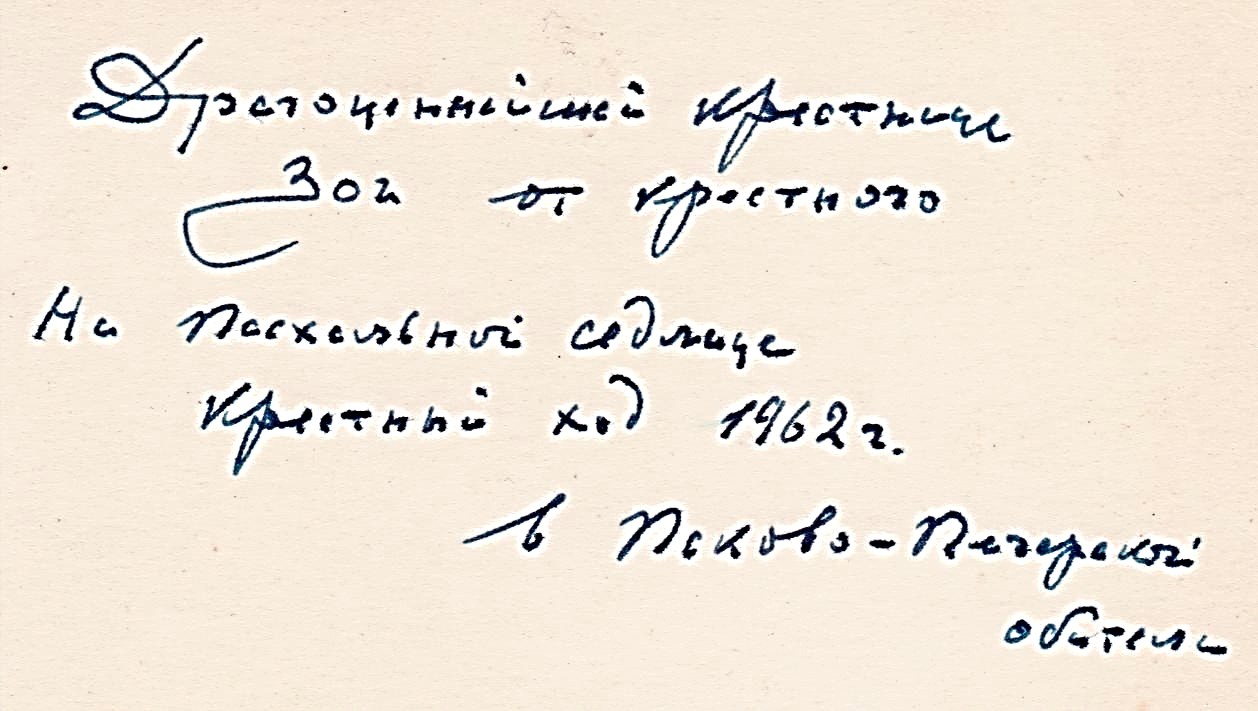 Драгоценнейшей крестнице
Зои от крестного
На Пасхальной седмице
Крестный ход 1962 г.
в Псково-Печерской
обители